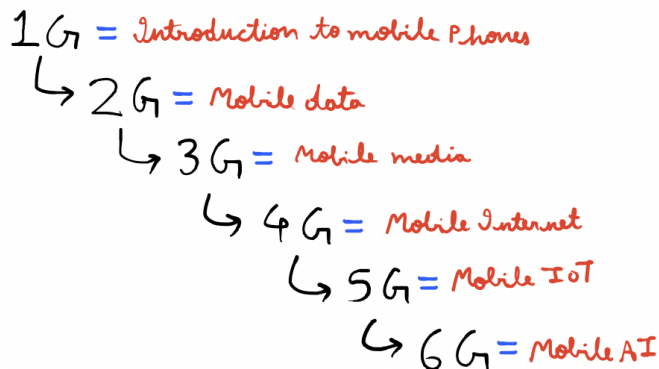 1G = Introduction to mobile Phones
2G = Mobile data
3G = Mobile media
4G = Mobile Internet
5G = Mobile IoT
6G = Mobile AI